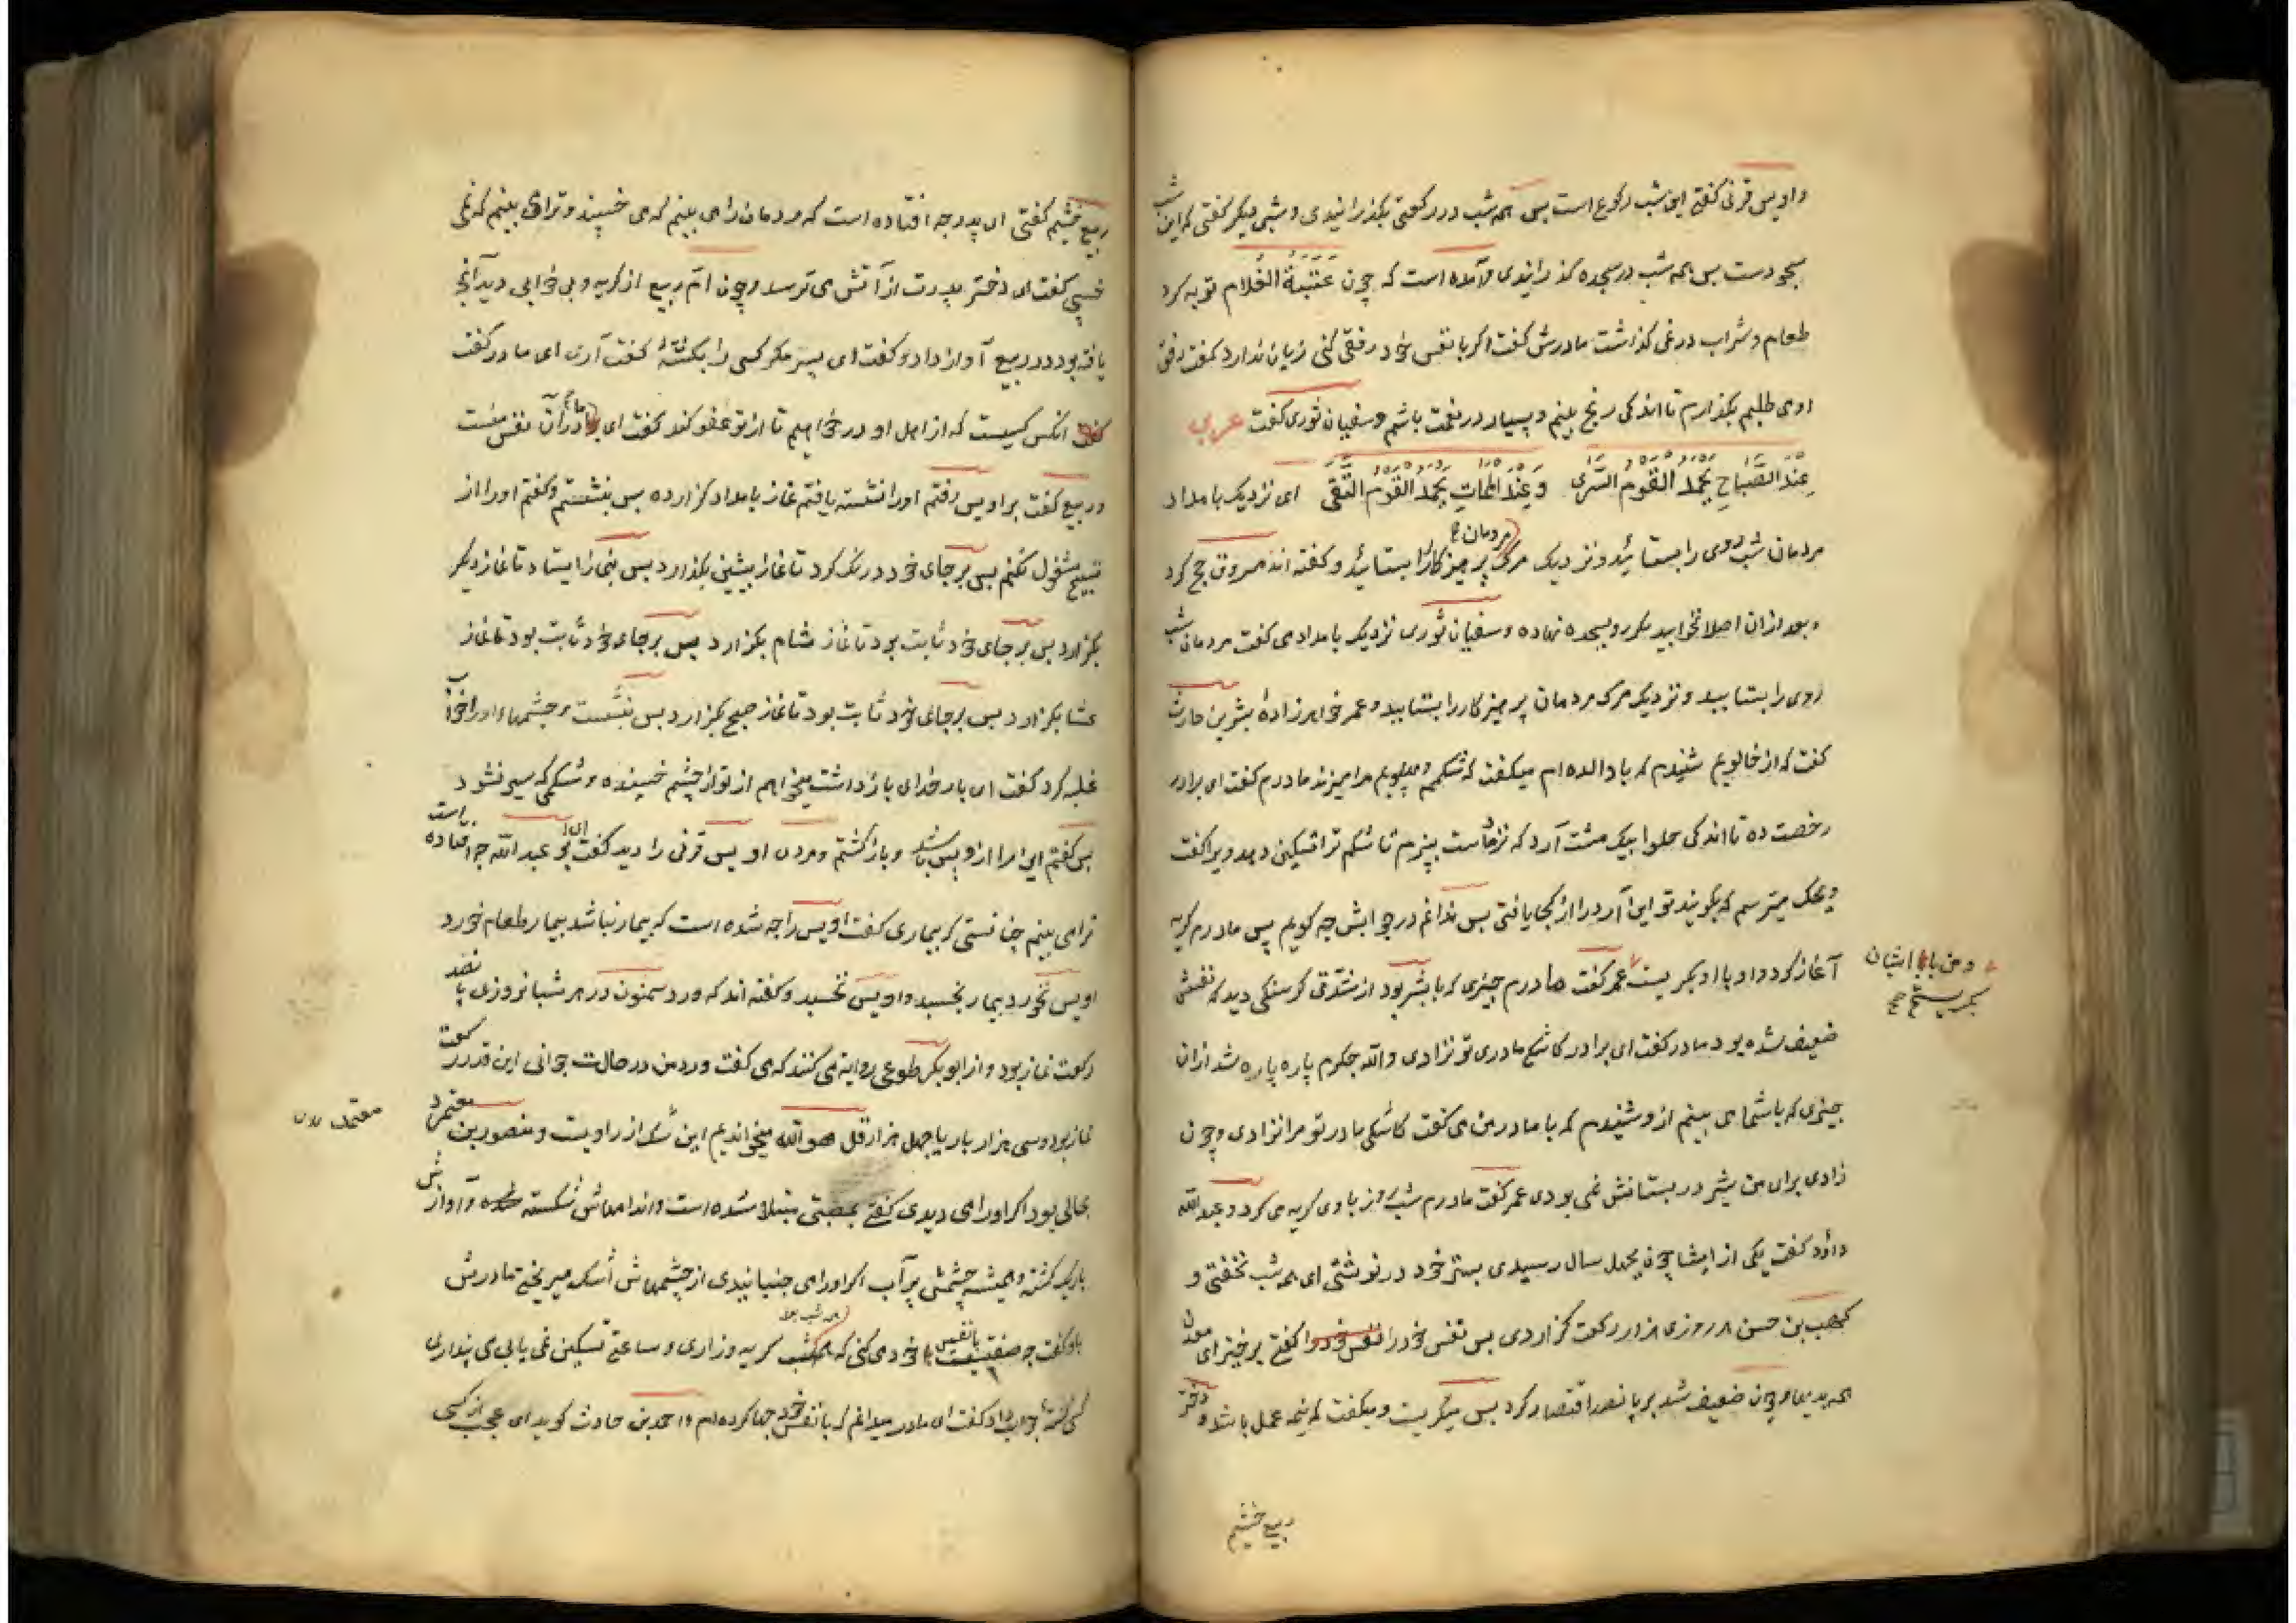 و اویس قرنی گفتی این شب رکوع است پس همه شب در رکعتی بگذرانیدی و شبی دیگر گفتی که این شب
سجودست پس همه شب در سجده گذرانیدی و آمده است که چون عتبة الغلام توبه کرد
طعام و شراب درغی گذاشت مادرش گفت اگر با نفس خود رفقی کنی زیان ندارد گفت رفق
او می طلبم بگذارم تا اندکی رنج بینم و بسیار در نعمت باشم و سفیان ثوری گفت عربی
عند الصباح یحمد القوم السری و عند الممات یحمد القوم التقی ای نزدیک بامداد
مردمان شب روی را بستایند و نزدیک مرک مردمان پرهیزکار را بستایند و گفته اند مسروق حج کرد
و بعد ازان اصلا نخوابید مگر رو بسجده نهاده و سفیان ثوری نزدیک بامداد می گفت مردمان شب
روی را بستایید و نزدیک مرک مردمان پرهیزکار را بستایید و عمر خواهرزادهٔ بشر بن حارث
گفت که از خالویم شنیدم که با والده ام میگفت که شکمم و پهلویم مرا میزند مادرم گفت ای برادر
رخصت ده تا اندکی حلوا بیک مشت آرد که نزد ماست بپزم تا شکم ترا تسکین دهد ویرا گفت
ویحک میترسم که بگویند تو این آرد را از کجا یافتی پس ندانم در جوابش چه گویم پس مادرم گریه
آغاز کرد و او با او بگریست عمر گفت مادرم چیزی که با بشر بود از شدت گرسنگی دید که نفسش
و من با ایشان بگریستم
ضعیف شده بود مادر گفت ای برادر کاشکی مادری تو نزادی والله جگرم پاره پاره شد ازان
چیزی که با شما می بینم ازو شنیدم که با مادر من می گفت کاشکی مادر تو مرا نزادی و چون
زادی برای من شیر در پستانش نمی بودی عمر گفت مادرم شب و روز با وی گریه می کرد و عبد الله
داود گفت یکی از ایشان چون بچهل سال رسیدی بستر خود در نوشتی ای همه شب نخفتی و
کهمس بن حسن هر روزی هزار رکعت گزاردی پس نفس خود را گفتی برخیز ای معدن
همه بدیها و چون ضعیف شد بر پانصد اقتصار کرد پس میگریست و میگفت که نیمه عمل باشد و دختر
ربیع خثیم
ربیع خثیم گفتی ای پدر چه افتاده است که مردمان را می بینم که می خسپند و ترا می بینم که نمی
خسپی گفت ای دختر پدرت از آتش می ترسد و چون ام ربیع از گریه و بی خوابی دید آنچه
یافته بود در ربیع آواز داد و گفت ای پسر مگر کسی را بکشتهٔ گفت آری ای مادر گفت
آنکس کیست که از اهل او در خواهیم تا از تو عفو کند گفت ای مادر آن نفس منست
و ربیع گفت بر اویس رفتم اورا نشسته یافتم نماز بامداد گزارده پس بنشستم و گفتم اورا از
تسبیح مشغول نکنم پس بر جای خود درنک کرد تا نماز پیشین بگذارد پس بنماز ایستاد تا نماز دیگر
بگزارد پس بر جای خود ثابت بود تا نماز شام بگزارد پس بر جای خود ثابت بود تا نماز
عشا بگزارد پس بر جای خود ثابت بود تا نماز صبح بگزارد پس بنشست و چشمهای اورا خواب
غلبه کرد گفت ای بار خدای بازداشت میخواهم از تو از چشم خسپنده و شکمی که سیر نشود
پس گفتم این مرا ازو بس باشد و بازگشتم و مردی اویس قرنی را دید گفت ای ابو عبد الله چه افتاده است
ترا می بینم چنانستی که بیماری گفت اویس را چه شده است که بیمار نباشد بیمار طعام خورد
اویس نخورد بیمار بخسپد و اویس نخسپد و گفته اند که ورد سمنون در هر شبانروزی پانصد
رکعت نماز بود و از ابوبکر مطوعی روایت می کنند که می گفت ورد من در حالت جوانی این قدر رکعت
نماز بود و سی هزار بار یا چهل هزار قل هو الله میخواندیم این شک از راویست و منصور بن معتمرد
معتمد
بحالی بود اگر اورا می دیدی گفتی بمصیبتی مبتلا شده است و اندامهاش شکسته و آوازش
باریک گشته و همیشه چشمش پر آب اگر اورا می جنبانیدی از چشمهاش اشک میریختی مادرش
باو گفت چه صفتیست با نفس خود می کنی که همه شب گریه و زاری و ساعتی تسکین نمی یابی می پنداری
کسی کشتهٔ جواب داد گفت ای مادر میدانم که با نفس خود چها کرده ام و احمد بن حادث گوید ای عجب از کسی